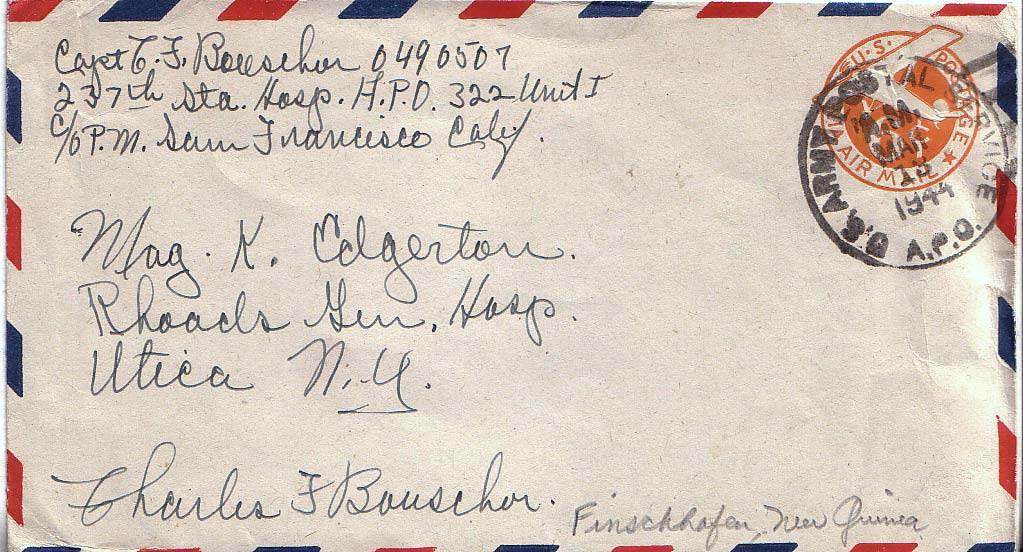 Capt C. F. Bauschor 0490507
237th Sta. Hosp. A.P.O. 322 Unit I
c/o P.M. San Francisco Calif.
U.S. POSTAGE
VIA AIR MAIL
U.S. ARMY POSTAL SERVICE
A.M.
MAR
12
1944
A.P.O.
Mag. K. Edgerton.
Rhoads Gen. Hosp.
Utica N.Y.
Charles F Bauschor.
Finschhafen, New Guinea